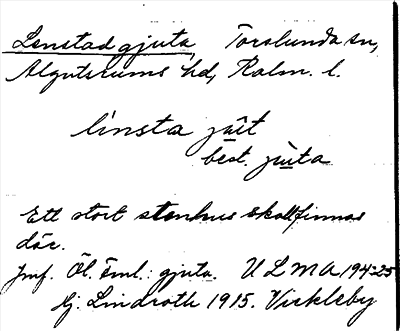 Lenstad gjuta, Torslunda sn,
Algutsrums hd, Kalm. l.
linsta jūt
best. jūta
Ett stort stenhus skall finnas
där.
Jmf. Öl. öml.: gjuta. ULMA 194:25
Hj. Lindroth 1915. Vickleby